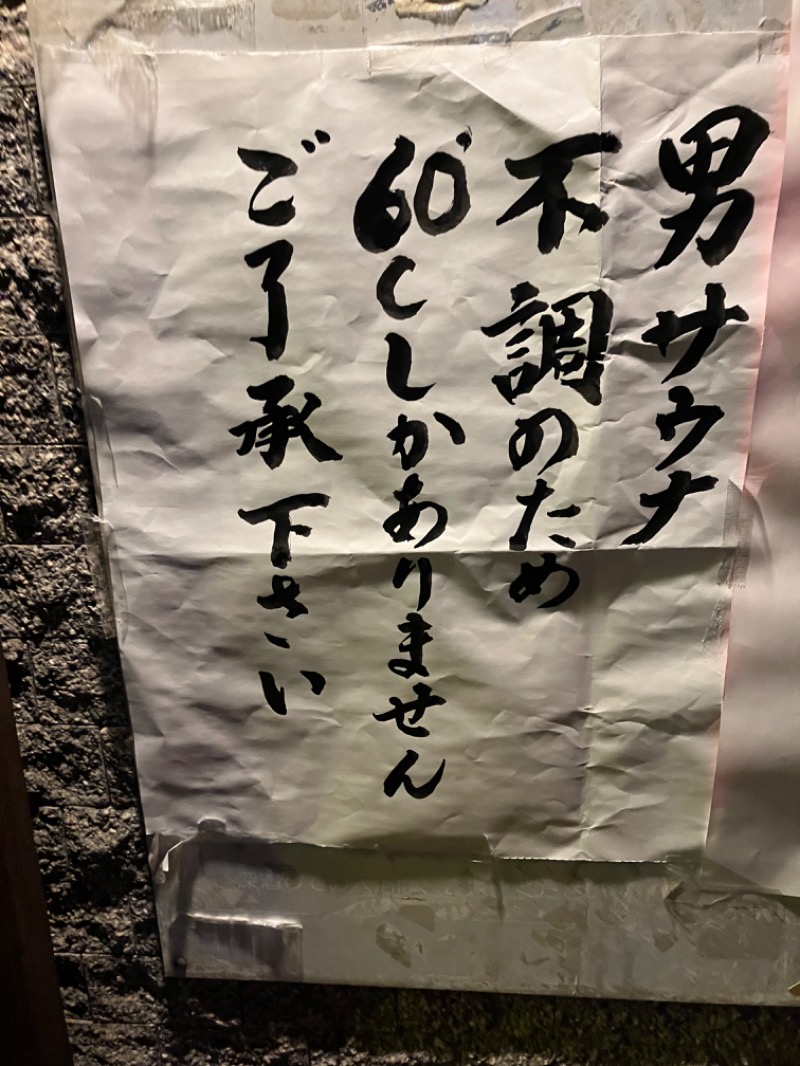 男サウナ
不調のため
60°Cしかありません
ご了承下さい